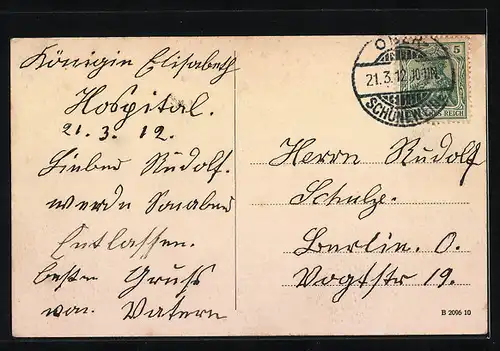 Königin Elisabeth
Hospital.
21. 3. 12.
Lieber Rudolf.
werde Sonabend
Entlassen.
besten Gruss
von Vatern
OBER-
21.3.12.10-11N.
SCHÖNEWEIDE
5
DEUTSCHES REICH
Herrn Rudolf
Schulze.
Berlin. O.
Vogtstr 19.
B 2096 10